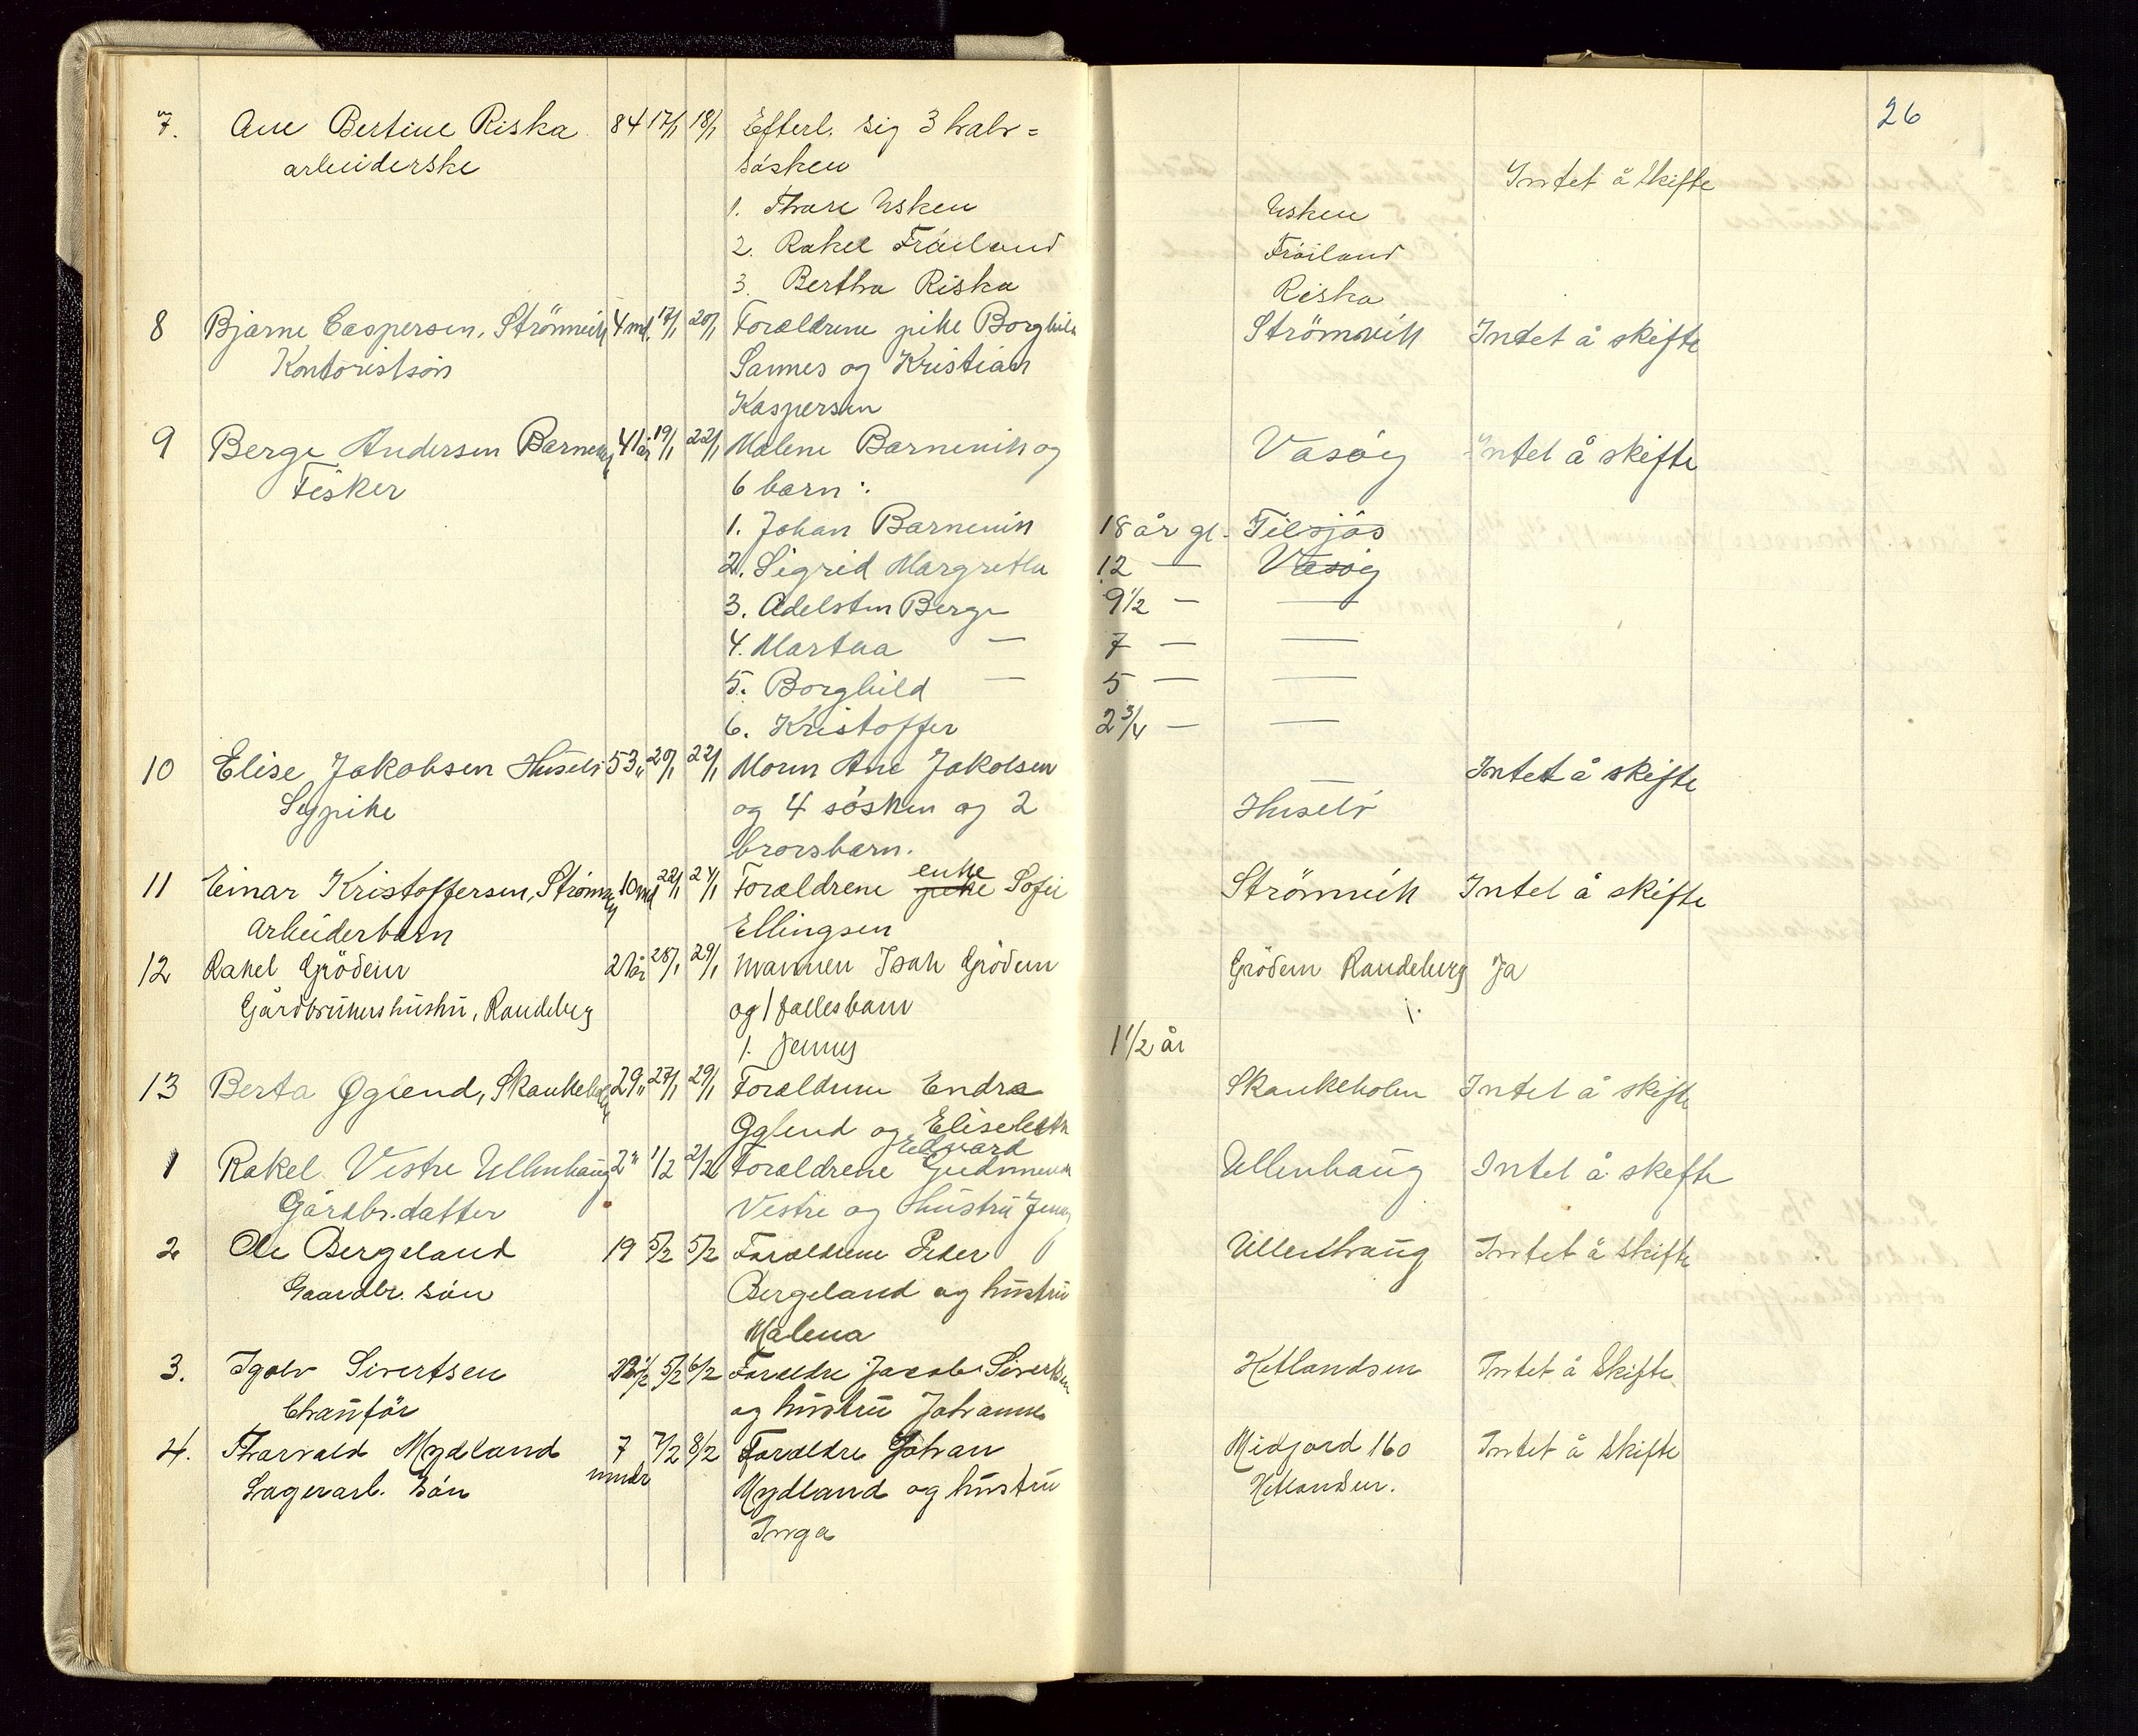 26
7. Ane Bertine Riska 84 17/1 18/1 Efterl. sig 3 halv=
arbeiderske søsken Intet å skifte
1. Thore Usken Usken
2. Rakel Fröiland Fröiland
3. Bertha Riska Riska
8 Bjarne Caspersen, Strömvik 4 md. 17/1 20/1 Forældrene pike Borghild Strömvik Indet å skifte
Kontoristsön Sannes og Kristian
Kaspersen
9 Berge Andersen Barnevik 41 år 19/1 22/1 Malene Barnevik og Vasöy Intet å skifte
Fisker 6 barn:
1. Johan Barnevik 18 år gl. Tilsjös
2. Sigrid Margretha 12 — Vasöy
3. Adelsten Berge 9 1/2 — —
4. Martha — 7 — —
5. Borghild — 5 — —
6. Kristoffer 2 3/4 — —
10 Elise Jakobsen Husebö 53 " 20/1 22/1 Moren Ane Jakobsen — Intet å skifte
Sypike og 4 søsken og 2 Husebö
brorsbarn.
11 Einar Kristoffersen, Strömvik 10 md 22/1 24/1 Forældrene pike enke Sofie Strömvik Intet å skifte
Arbeiderbarn Ellingsen
12 Rakel Grödem 21 år 28/1 29/1 Mannen Isak Grödem Grödem Randeberg Ja
Gårdbrukerhustru, Randeberg og 1 fællesbarn 1.
1. Jenny 1 1/2 år
13 Berta Øglend, Skankeholm 29 " 27/1 29/1 Forældrene Endre Skankeholm Intet å skifte
Øglend og Elisebeth
1 Rakel Vestre Ullenhaug 2 " 1/2 2/2 Forældrene Gudmund Edvard Ullenhaug Intet å skifte
Gårdbr. datter Vestre og Hustru Jenny
2 Ole Bergeland 19 5/2 5/2 Forældrene Peder Ullenhaug Intet å skifte
Gaardbr. sön Bergeland og hustru
Malena
3. Igolv Sivertsen 5/2 6/2 Forældre Jacob Sivertsen Hetlandsm Intet å skifte
Chauför og hustru Johanne
4. Thorvald Mydland 7 7/2 8/2 Forældre Johan Midjord 160 Intet å skifte
Lagerarb. sön mndr Mydland og hustru Hetlandsm.
Inga